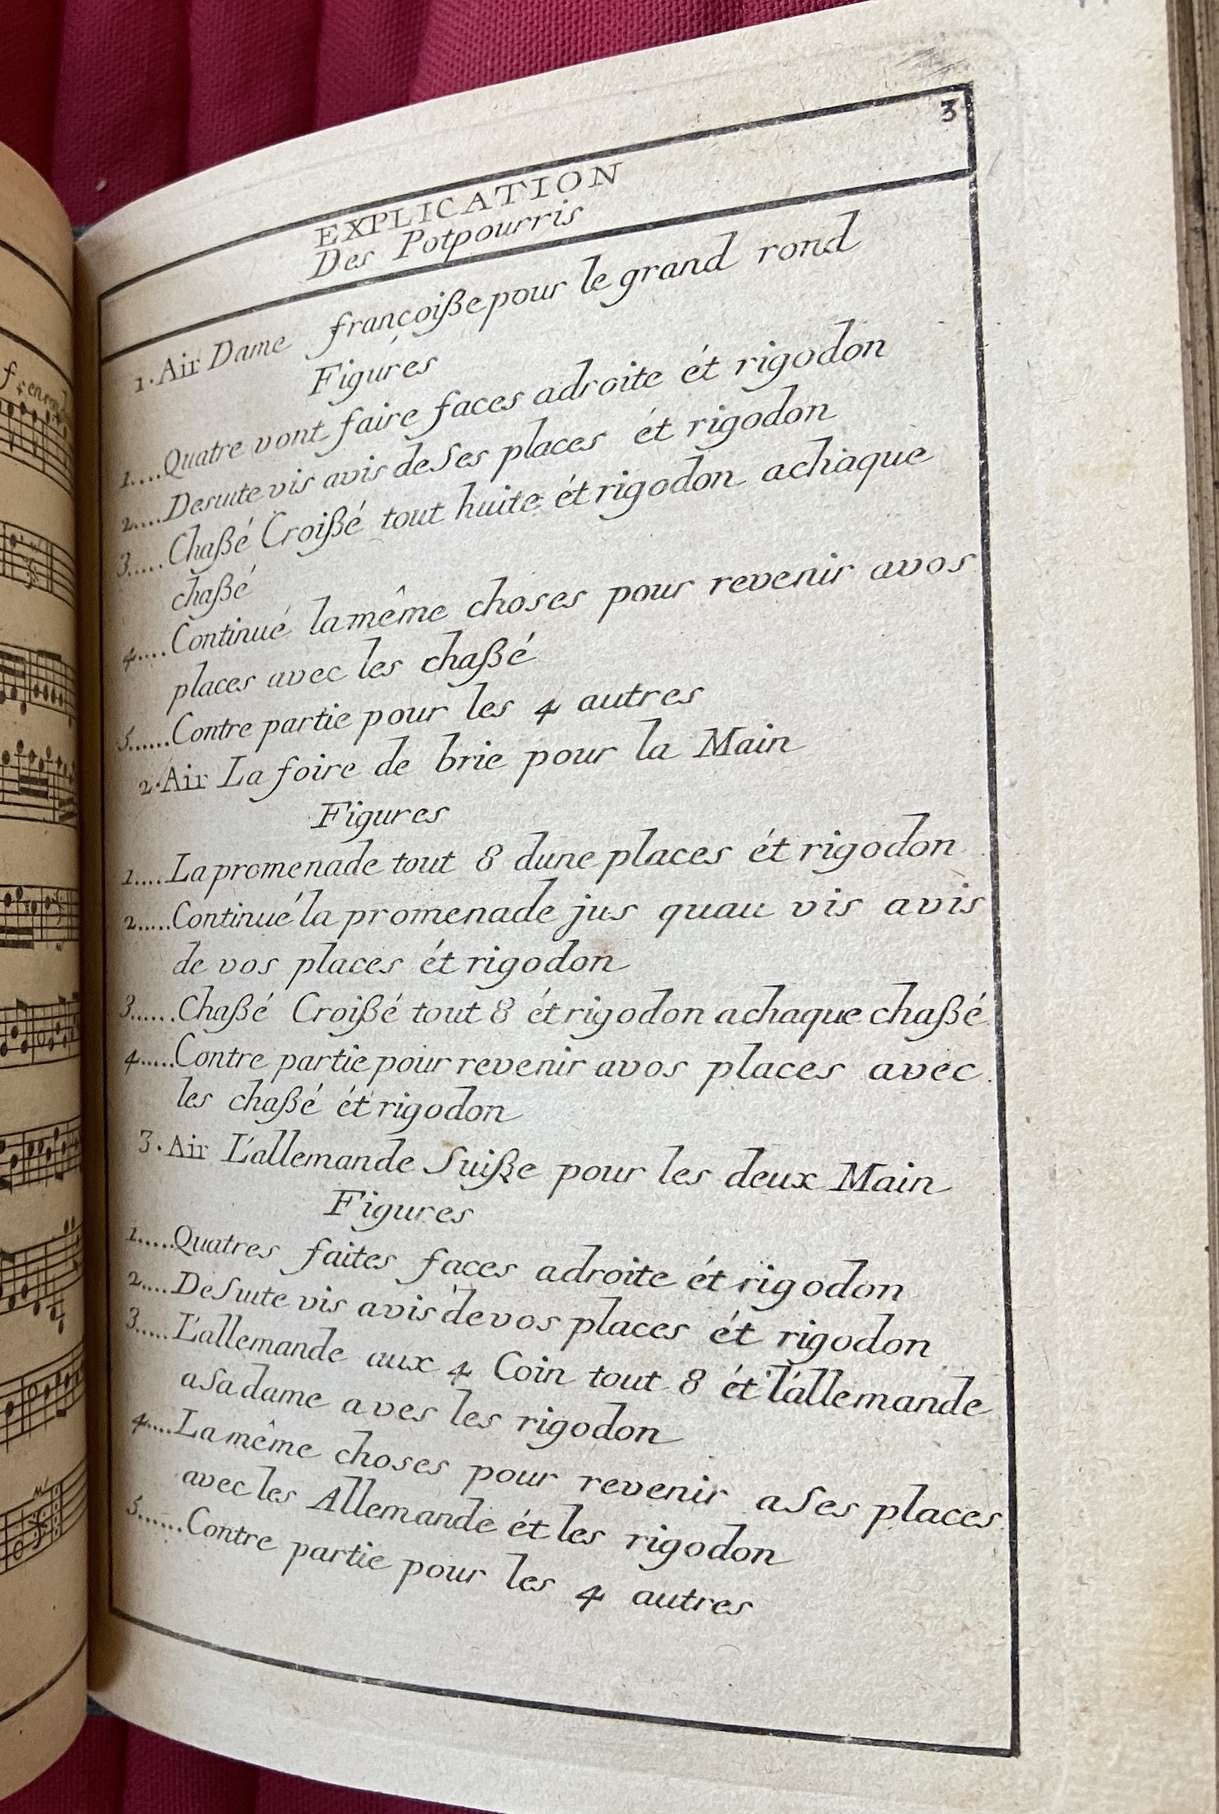 3
EXPLICATION
Des Potpourris
1. Air Dame françoiße pour le grand rond
Figures
1....Quatre vont faire faces adroite ét rigodon
2....Desuite vis avis de Ses places ét rigodon
3.....Chaßé Croißé tout huite ét rigodon achaque
chaßé
4....Continué la même choses pour revenir avos
places avec les chaßé
5......Contre partie pour les 4 autres
2. Air La foire de brie pour la Main
Figures
1....La promenade tout 8 dune places ét rigodon
2.....Continué la promenade jus quau vis avis
de vos places ét rigodon
3......Chaßé Croißé tout 8 ét rigodon achaque chaßé
4.....Contre partie pour revenir avos places avec
les chaßé ét rigodon
3. Air L'allemande Suiße pour les deux Main
Figures
1.....Quatres faites faces adroite ét rigodon
2....DeSuite vis avis de vos places ét rigodon
3.....L'allemande aux 4 Coin tout 8 ét l'allemande
aSa dame aves les rigodon
4....La même choses pour revenir aSes places
avec les Allemande ét les rigodon
5......Contre partie pour les 4 autres